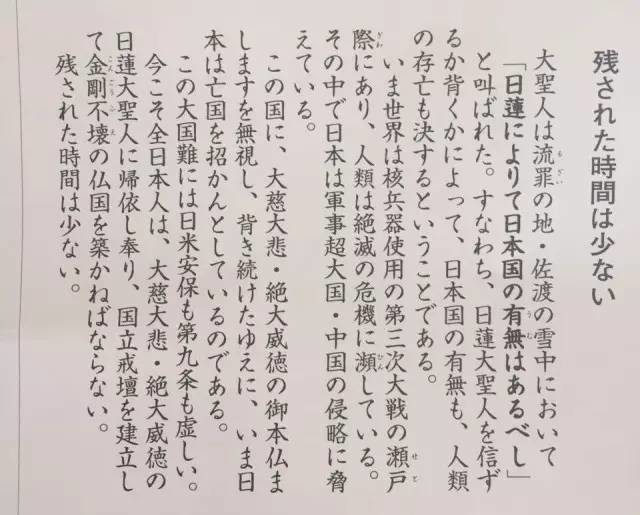 残された時間は少ない
大聖人は流罪の地・佐渡の雪中において
「日蓮によりて日本国の有無はあるべし」
と叫ばれた。すなわち、日蓮大聖人を信ず
るか背くかによって、日本国の有無も、人類
の存亡も決するということである。
いま世界は核兵器使用の第三次大戦の瀬戸
際にあり、人類は絶滅の危機に瀕している。
その中で日本は軍事超大国・中国の侵略に脅
えている。
この国に、大慈大悲・絶大威徳の御本仏ま
しますを無視し、背き続けたゆえに、いま日
本は亡国を招かんとしているのである。
この大国難には日米安保も第九条も虚しい。
今こそ全日本人は、大慈大悲・絶大威徳の
日蓮大聖人に帰依し奉り、国立戒壇を建立し
て金剛不壊の仏国を築かねばならない。
残された時間は少ない。